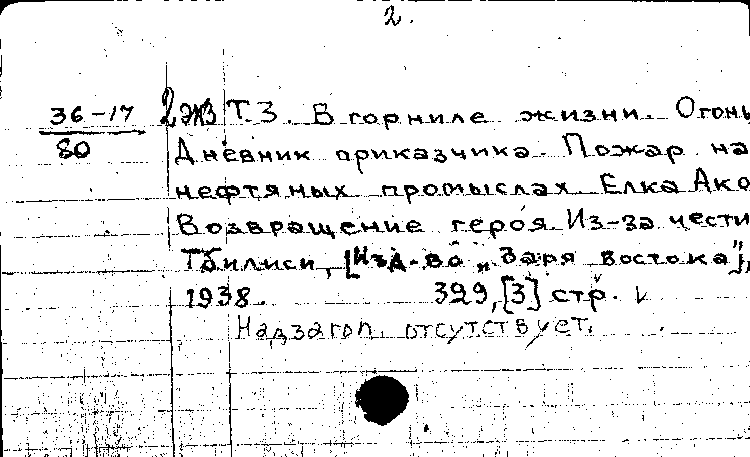 2.
36-17 2жз Т.3. В горниле жизни. Огонь
80 Дневник приказчика. Пожар на
нефтяных промыслах. Елка Ако
Возвращение героя. Из-за чести
Тбилиси, [Изд-во „Заря Востока"],
1938. 329, [3] стр.
Надзагол. отсутствует.